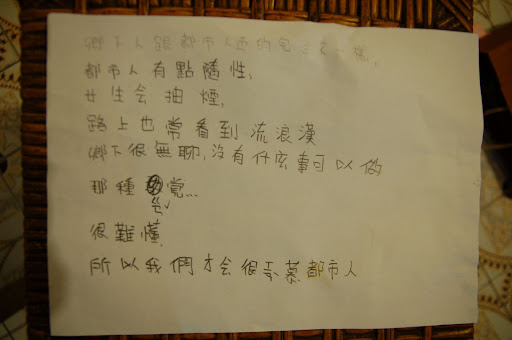 鄉下人跟都市人真的 不一樣,
都市人有點隨性,
女生会抽煙,
路上也常看到流浪漢
鄉下很無聊,沒有什庅事可以做
那種 覚...
很難懂,
所以我們才会很羡慕都市人